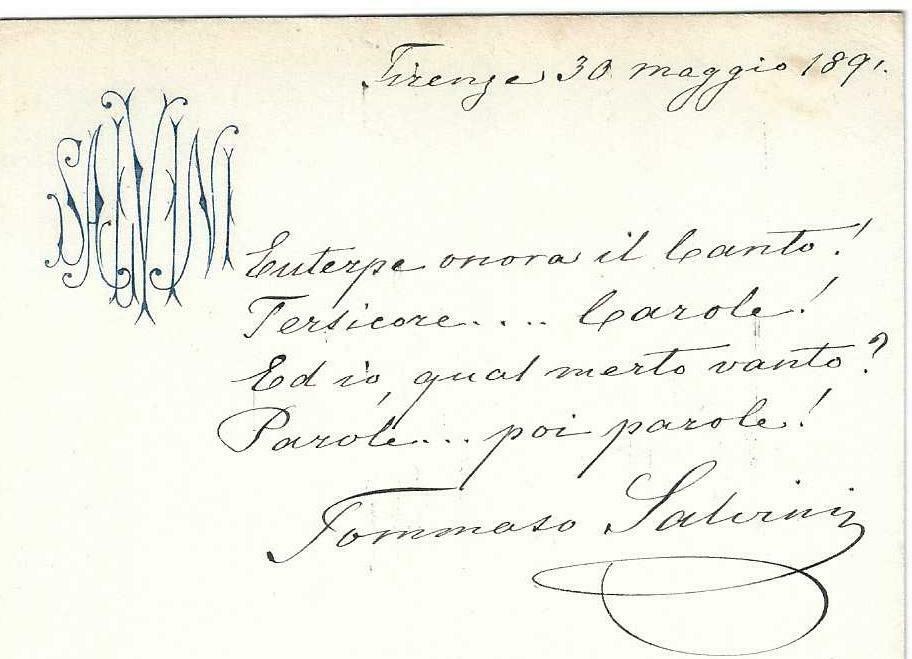 Firenze 30 maggio 1891.
SALVINI
Euterpe onora il Canto!
Tersicore.... Carole!
Ed io, qual merto vanto?
Parole... poi parole!
Tommaso Salvini